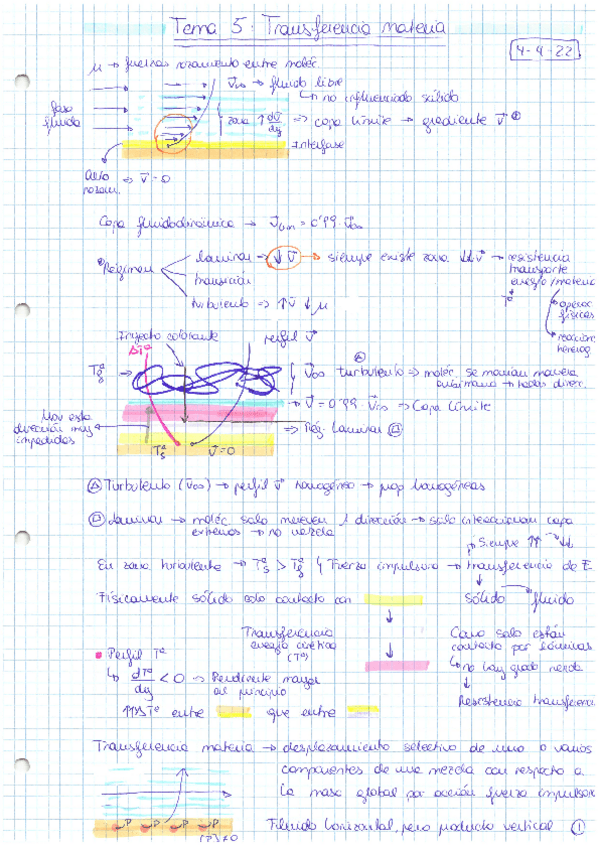 Tema 5: Transferencia materia
4-4-22
μ → fuerzas rozamiento entre moléc.
V∞ → fluido libre
↳ no influenciado sólido
fase fluida
zona ↑ dv/dy ⇒ capa límite → gradiente v
Interfase
alto rozam. ⇒ v = 0
Capa fluidodinámica → v lím = 0'99 · v∞
Régimen
laminar → ↓ v → siempre existe zona ↓↓v → resistencia transporte energía/materia
transición
turbulento ⇒ ↑v ↓μ
Tª
operac. físicas
reacción heterog
Trayecto colorante
perfil v
ΔTª
v∞ turbulento ⇒ moléc. se mueven manera
→ todas direc.
→ v = 0'99 · v∞ ⇒ Capa límite
Mov esta dirección muy impedidos
⇒ Rég. laminar
Tªs
v = 0
Turbulento (v∞) → perfil v homogéneo → prop homogéneas
Laminar → moléc solo mueven 1 dirección → solo interaccionan capa
extremos → no mezcla
Siempre ↑↑ → ↓↓
En zona turbulenta → Tªs > Tªg Fuerza impulsora → transferencia de E
Físicamente sólido solo contacto con
sólido fluido
Transferencia energía cinética (Tª)
Como solo están contacto por láminas
↳ no hay grado mezcla
↓
Resistencia transferencia
Perfil Tª
↳ dTª/dy < 0 → Pendiente mayor al principio
↑↑ΔTª entre que entre
Transferencia materia → desplazamiento selectivo de uno o varios
componentes de una mezcla con respecto a
la masa global por acción fuerza impulsora
P P P P
[P] ≠ 0
Fluido horizontal, pero producto vertical ①